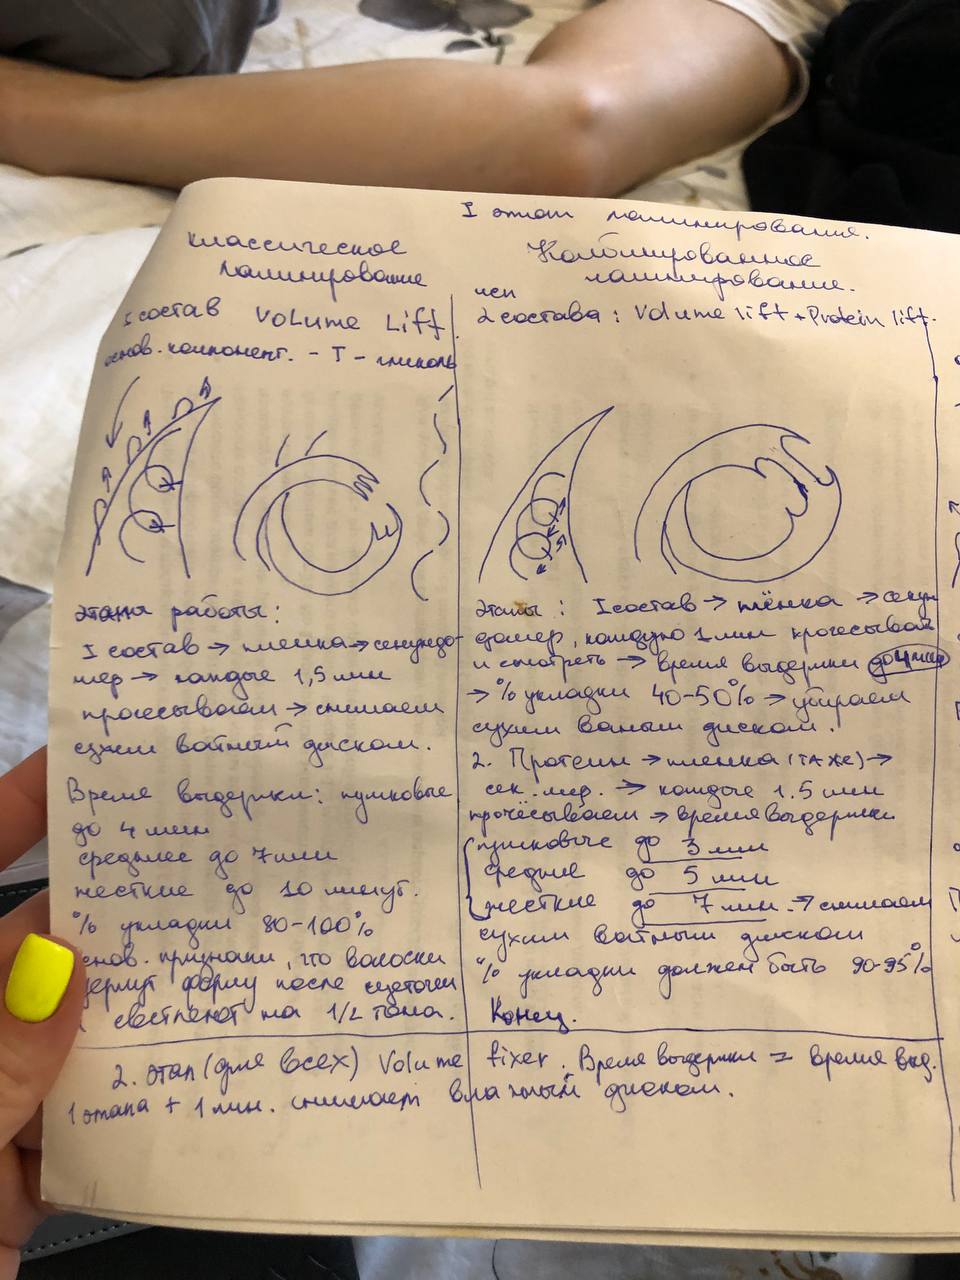 I этап ламинирования.
классическое
ламинирование
1 состав Volume Lift
основ. компонент. - Т - гликоль
этапы работы:
I состав → пленка → секундо-
мер → каждые 1,5 мин
прочесываем → снимаем
сухим ватный диском.
Время выдержки: пушковые
до 4 мин
среднее до 7 мин
жесткие до 10 минут.
% укладки 80-100%
основ. признаки, что волоски
держут форму после щеточки
и светлеют на 1/2 тона.
Комбинированное
ламинирование.
исп
2 состава: Volume lift + Protein lift.
этапы: I состав → плёнка → секун
домер, каждую 1 мин прочесываем
и смотреть → время выдержки
→ % укладки 40-50% → убираем
сухим ватным диском.
2. Протеин → пленка (таже) →
сек. мер. → каждые 1.5 мин
прочёсываем → время выдержки
пушковые до 3 мин
средние до 5 мин
жесткие до 7 мин. → снимаем
сухим ватным диском
% укладки должен быть 90-95%
Конец.
2. этап (для всех) Volume fixer. Время выдержки = время выд.
1 этапа + 1 мин. снимает влажный диском.